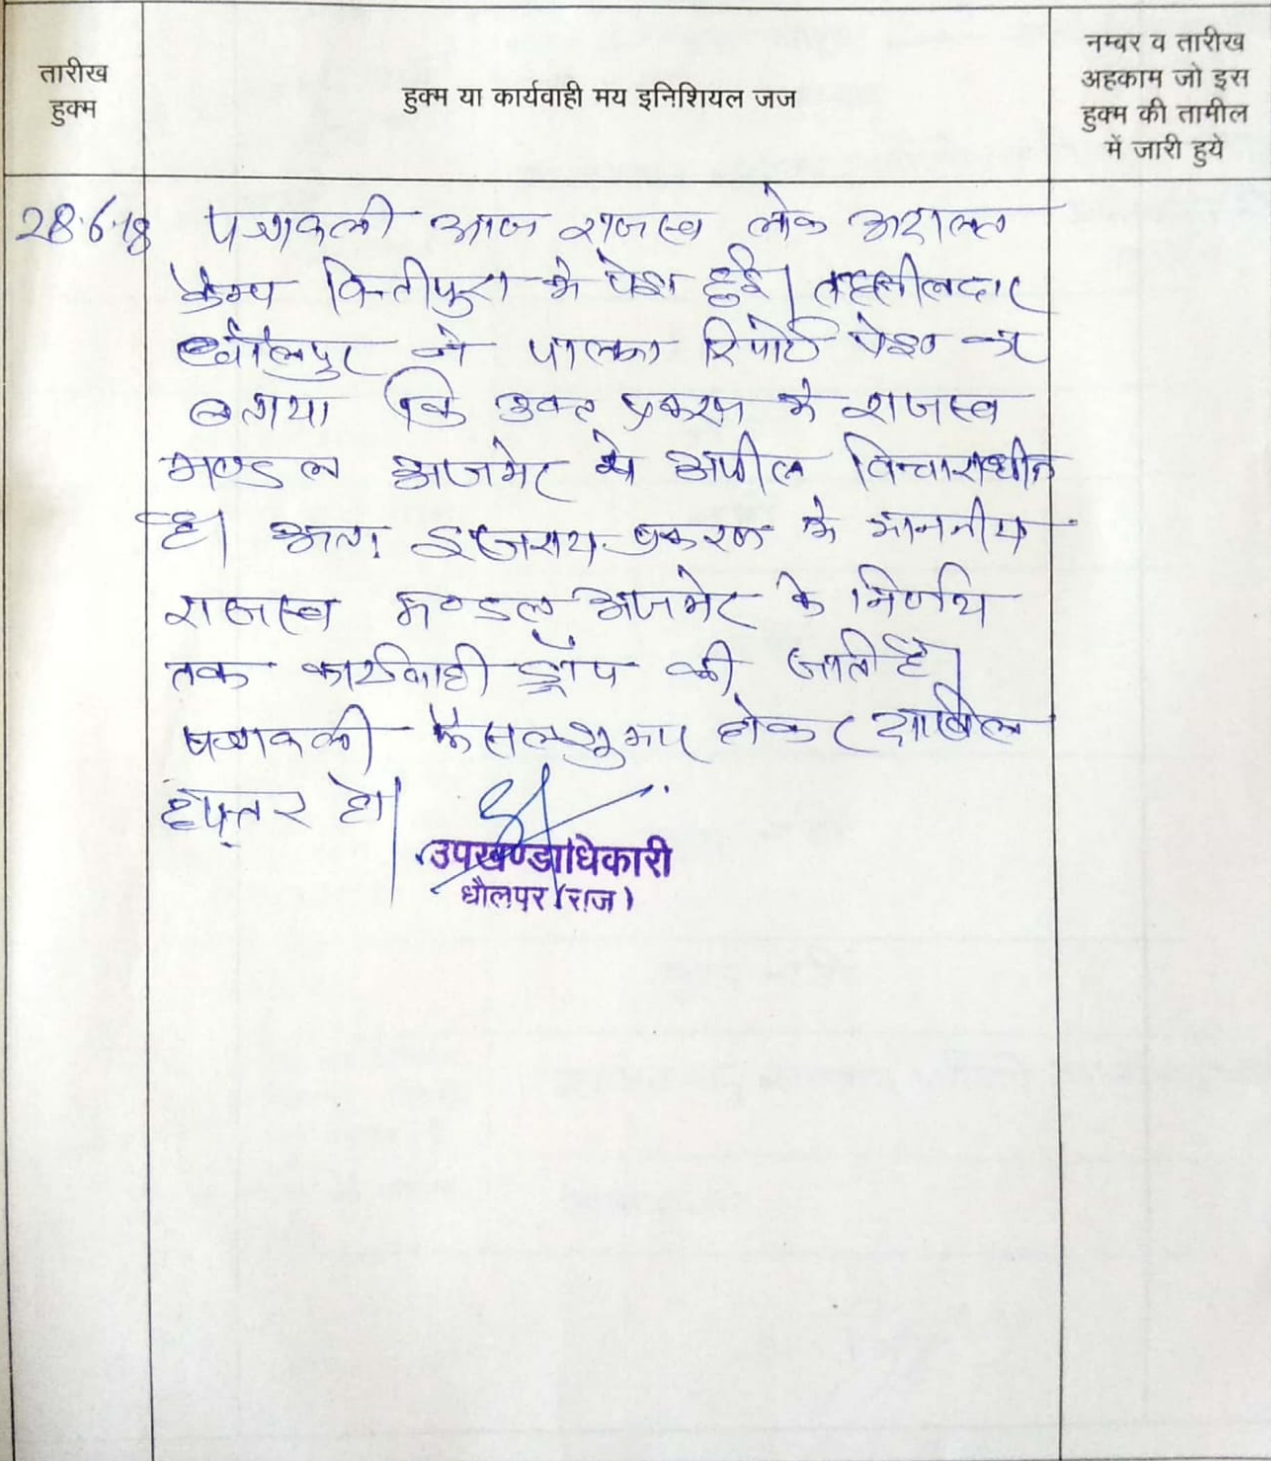 तारीख
हुक्म
हुक्म या कार्यवाही मय इनिशियल जज
नम्बर व तारीख
अहकाम जो इस
हुक्म की तामील
में जारी हुये
28.6.18 पत्रावली आज राजस्व लोक अदालत
कैम्प में पेश हुई। तहसीलदार
धौलपुर ने पालना रिपोर्ट पेश कर
बताया कि उक्त प्रकरण में राजस्व
मण्डल अजमेर में अपील विचाराधीन
है। अतः इजराय प्रकरण के माननीय
राजस्व मण्डल अजमेर के निर्णय
तक कार्यवाही ड्रॉप की जाती है।
पत्रावली फैसलशुमार होकर दाखिल
दफ्तर हो।
उपखण्डाधिकारी
धौलपुर (राज)